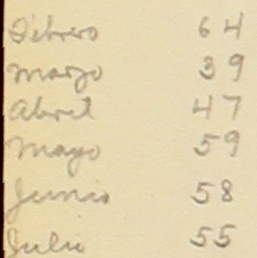 Febrero 64
Marzo 39
Abril 47
Mayo 59
Junio 58
Julio 55